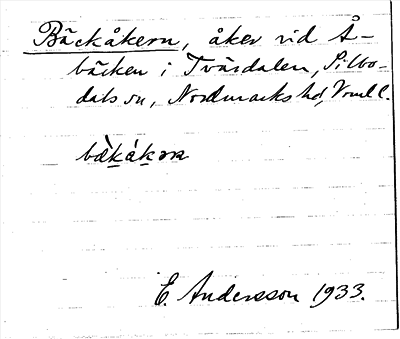 Bäckåkern, åker vid Å-
bäcken i Tvärdalen, Silbo-
dals sn, Nordmarks hd, Vrml l.
bæ̀kåkɐra
E. Andersson 1933.